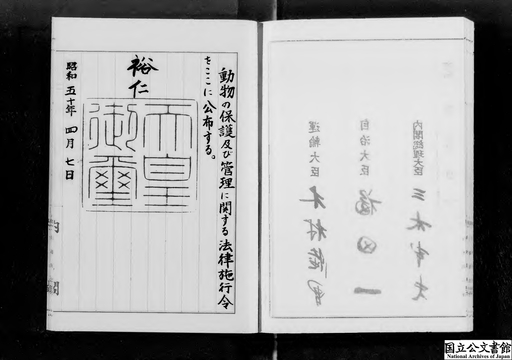 動物の保護及び管理に関する法律施行令
をここに公布する。
裕仁
天皇
御璽
昭和五十年四月七日
内閣総理大臣 三木武夫
自治大臣 福田一
運輸大臣 木村睦男
国立公文書館
National Archives of Japan